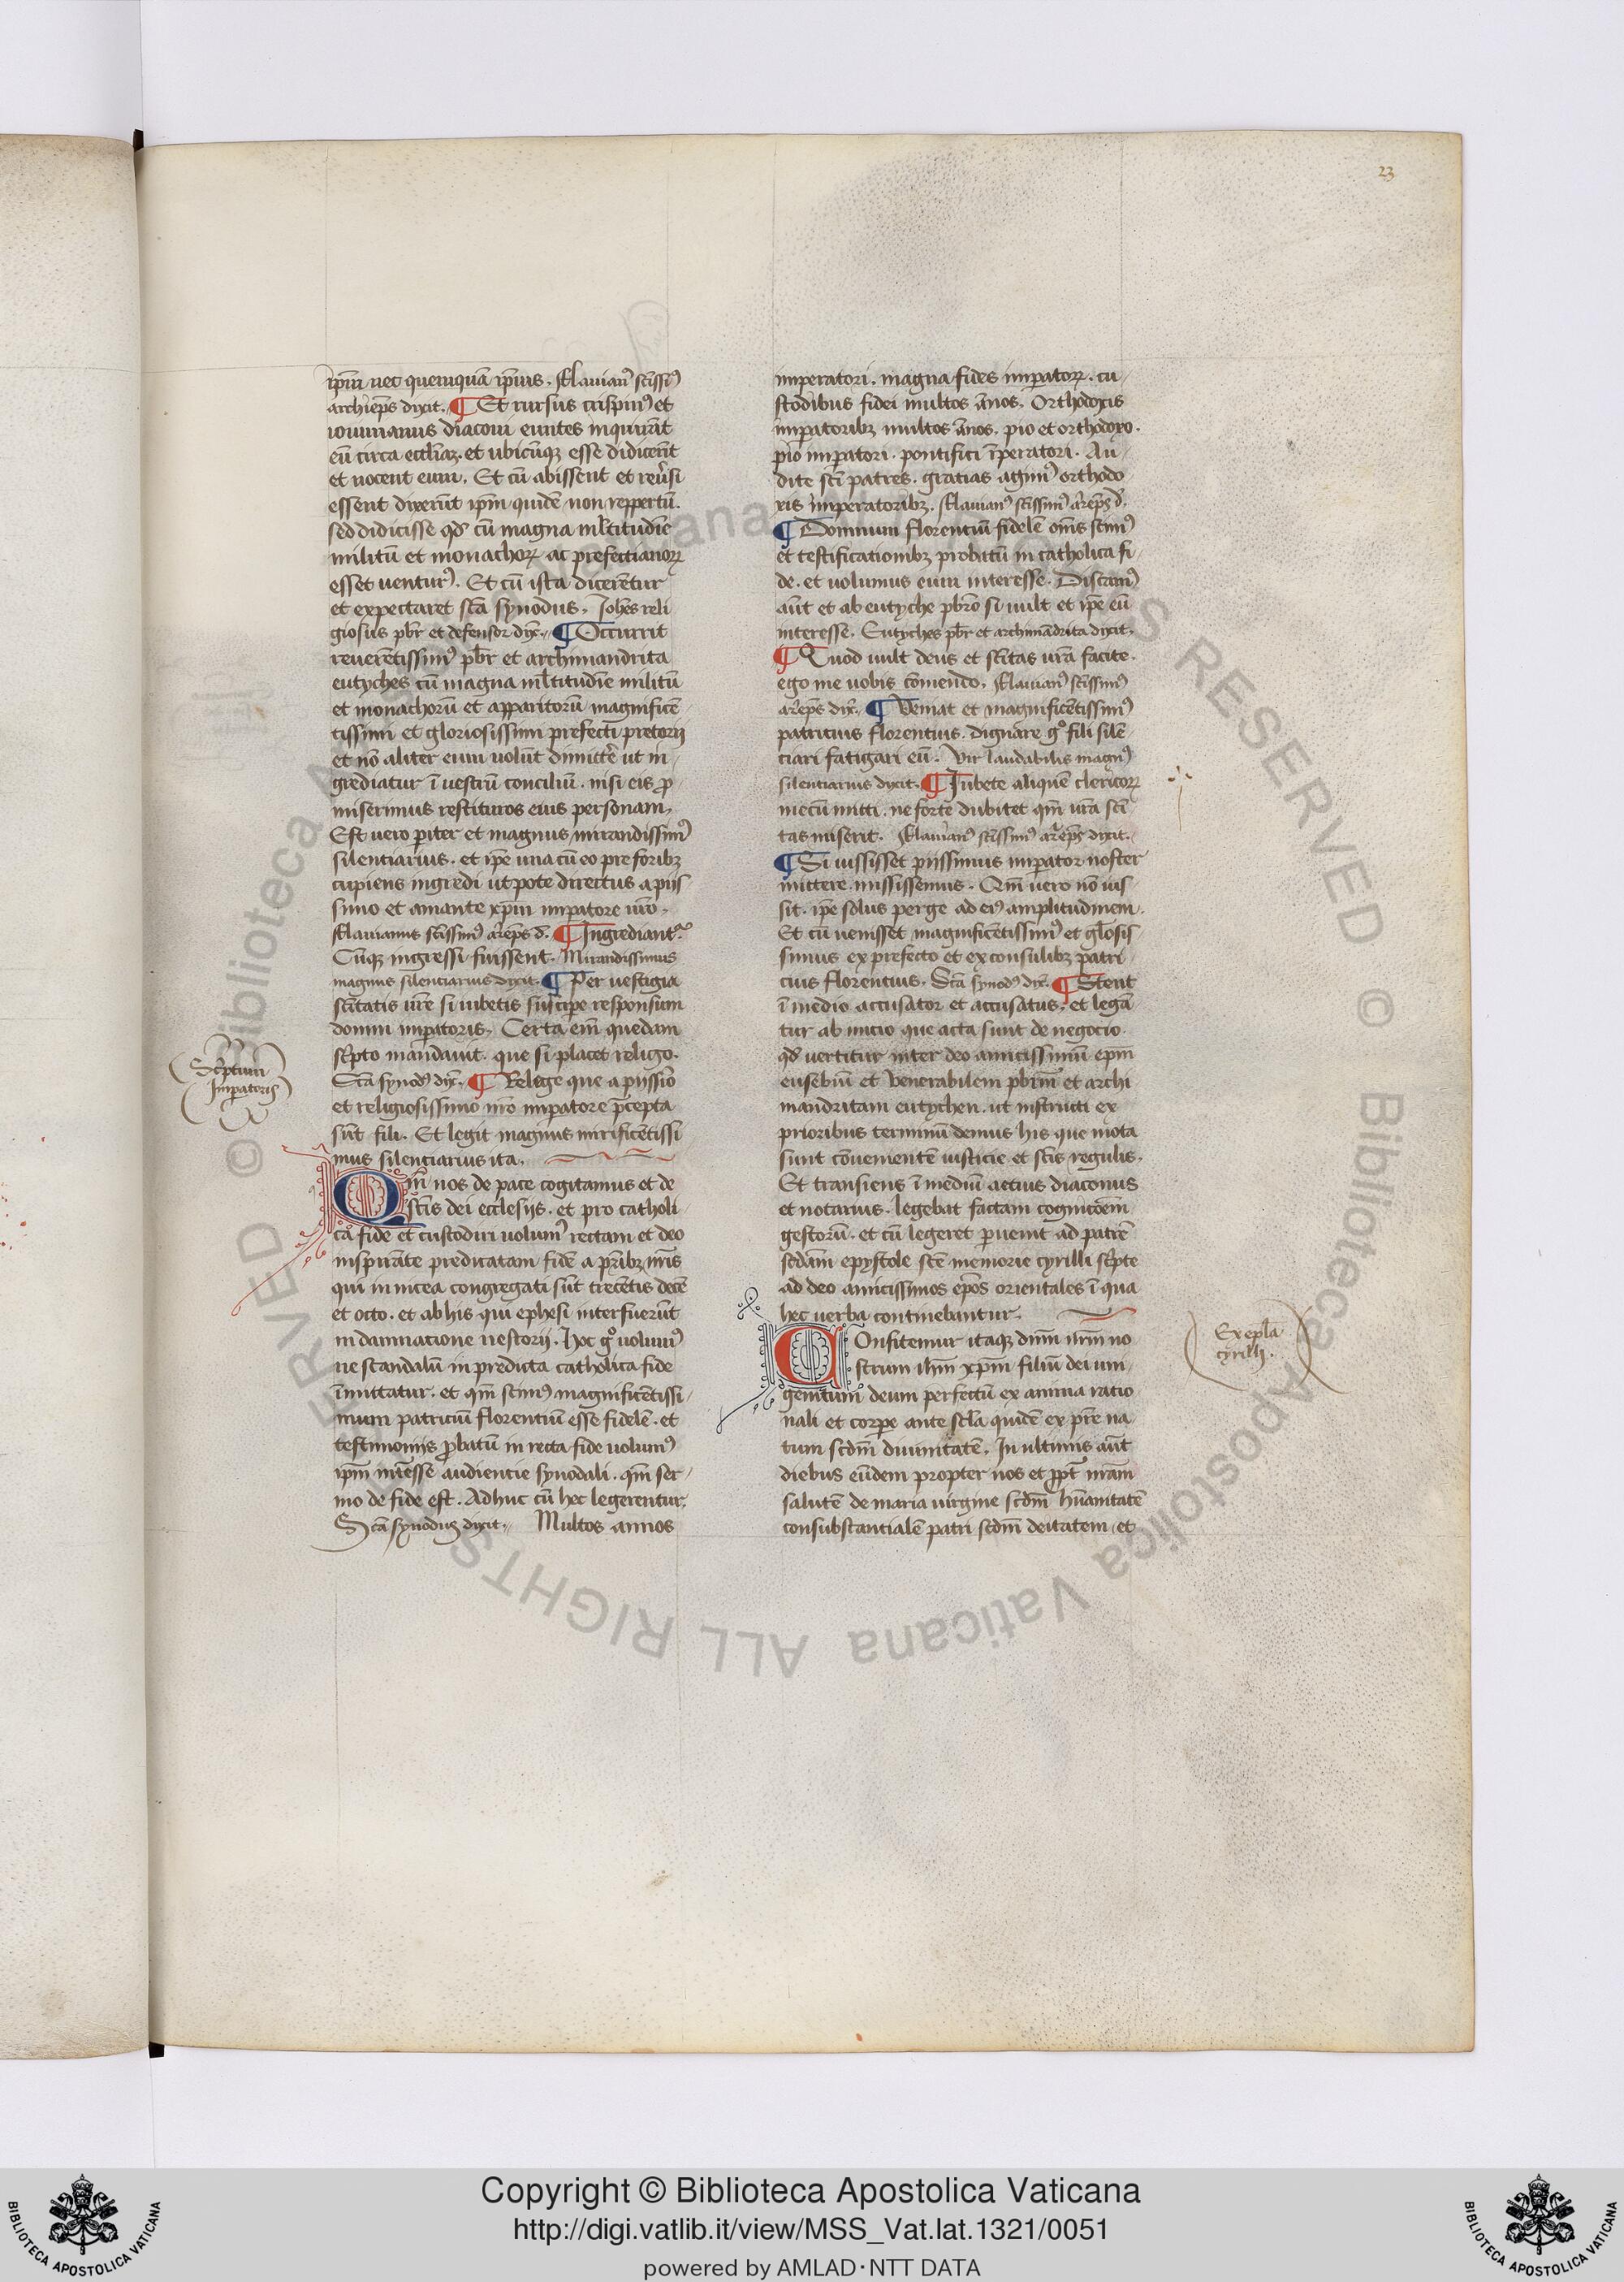 23
ip̄m nec quemquā ip̄ius. Flauian⁹ sc̄issi⁹
archiep̄s dixit. ¶ Et rursus crispin⁹ et
iouinianus diaconi euntes inquirāt
eū circa eccl̄iaz. et ubicūqz esse didicer̄t
et uocent eum. Et cū abissent et reu̓si
essent dixerūt ip̄m quidē non reppertū.
sed didicisse qd̓ cū magna ml̄titudīe
militū et monachoꝝ ac prefectianoꝝ
esset uentur⁹. Et cū ista dicerētur
et expectaret sc̄a synodus. Joh̄es reli
giosus pbr̄ et defensor dix̄. ¶ Occurrit
reuerētissim⁹ pbr̄ et archimandrita
eutyches cū magna ml̄titudīe militū
et monachorū et apparitorū magnificē
tissimi et gloriosissimi prefecti pretorij
et nō aliter eum uolūt dimitte̓ ut in
grediatur ī uestrū conciliū. nisi eis ꝓ
miserimus restituros eius personam.
Est uero ꝑiter et magnus mirandissim⁹
silentiarius. et ip̄e una cū eo pre foribz
cupiens ingredi utpote directus a pijs
simo et amante xp̄m imꝑatore nr̄o.
Flauianus sc̄issim⁹ ar̄ep̄s d̄. ¶ Ingrediant̓.
Cūqz ingressi fuissent. Mirandissimus
magnus silentiarius dixit. ¶ Per uestigia
sc̄itatis ur̄e si iubetis suscipe responsum
domini imꝑatoris. Certa em̄ quedam
sc̓pto mandauit. que si placet religo.
Sc̄a synod⁹ dix̄. ¶ Relege que a pijssīo
et religiosissimo nr̄o imꝑatore p̄cepta
sūt fili. Et legit magnus mirificētissi
mus silentiarius ita.
Qm̄ nos de pace cogitamus et de
sc̄is dei ecclesijs. et pro catholi
ca fide et custodiri uolum⁹ rectam et deo
inspirāte predicatam fidē a pr̄ibz nr̄is
qui in nicea congregati sūt trecētis decē
et octo. et ab his qui ephesi interfuerūt
in damnacione nestorij. Hoc gͦ uolum⁹
ne scandalū in predicta catholica fide
īmittatur. et qm̄ scim⁹ magnificētissi
mum patriciū florentiū esse fidelē. et
testimonijs ꝓbatū in recta fide uolum⁹
ip̄m inter̄esse audientie synodali. qm̄ ser
mo de fide est. Adhuc cū hec legerentur.
Sc̄a synodus dixit. Multos annos
Sc̓ptum
Imꝑatoris
imperatori. magna fides imꝑatoꝝ. cu
stodibus fidei multos ānos. Orthodoxis
imꝑatoribz multos ānos. pio et orthodoxo.
pio imꝑatori. pontifici īperatori. Au
dite sc̄i patres. gratias agim⁹ orthodo
xis imperatoribz. Flauian⁹ sc̄issim⁹ ar̄ep̄s d̓.
¶ Domnum florentiū fidelē om̄s scim⁹
et testificationibz probatū in catholica fi
de. et uolumus eum interesse. Discam⁹
aūt et ab eutyche pbr̄o si uult et ip̄e eū
interesse. Eutyches pbr̄ et archimādrita dixit.
¶ Quod uult deus et sc̄itas ur̄a facite.
ego me uobis cōmendo. Flauian⁹ sc̄issim⁹
ar̄ep̄s dix̄. ¶ Veniat et magnificētissim⁹
patricius florentius. dignare gͦ fili silē
ciari fatigari eū. Vir laudabilis magn⁹
silentiarius dixit. ¶ Iubete aliquē clericoꝝ
mecū mitti. ne forte dubitet qm̄ ur̄a sc̄i
tas miserit. Flauian⁹ sc̄issim⁹ ar̄ep̄s dixit.
¶ Si iussisset pijssimus imꝑator noster
mittere. misissemus. Qm̄ uero nō ius
sit. ip̄e solus perge ad ei⁹ amplitudinem.
Et cū uenisset magnificētissim⁹ et gl̄osis
simus ex prefecto et ex consulibz patri
cius florentius. Sc̄a synod⁹ dix̄. ¶ Stent
ī medio accusator et accusatus. et legā
tur ab inicio que acta sunt de negocio.
qd̓ uertitur inter deo amicissimū ep̄m
eusebiū et venerabilem pbr̄m et archi
mandritam eutychen. ut instructi ex
prioribus terminū demus his que mota
sunt cōuenientē iusticie et sc̄is regulis.
Et transiens ī mediū actius diaconus
et notarius. legebat factam cognicōem
gestorū. et cū legeret ꝑuenit ad patrē
scd̄am epystole sc̄e memorie cyrilli sc̓pte
ad deo amicissimos ep̄os orientales ī qua
hec uerba continebantur.
Confitemur itaqz dn̄m nr̄m no
strum ih̄m xp̄m filiū dei uni
genitum deum perfectū ex anima ratio
nali et corpe ante sc̄la quidē ex pr̄e na
tum scd̄m diuinitatē. In ultimis aūt
diebus eūdem propter nos et ꝓpt̓ nr̄am
salutē de maria uirgine scd̄m hūanitatē
consubstantialē patri scd̄m deitatem et
Ex epl̄a
cyrilli.
© Biblioteca Apostolica Vaticana ALL RIGHTS RESERVED
Copyright © Biblioteca Apostolica Vaticana
http://digi.vatlib.it/view/MSS_Vat.lat.1321/0051
powered by AMLAD·NTT DATA
BIBLIOTECA APOSTOLICA VATICANA
BIBLIOTECA APOSTOLICA VATICANA